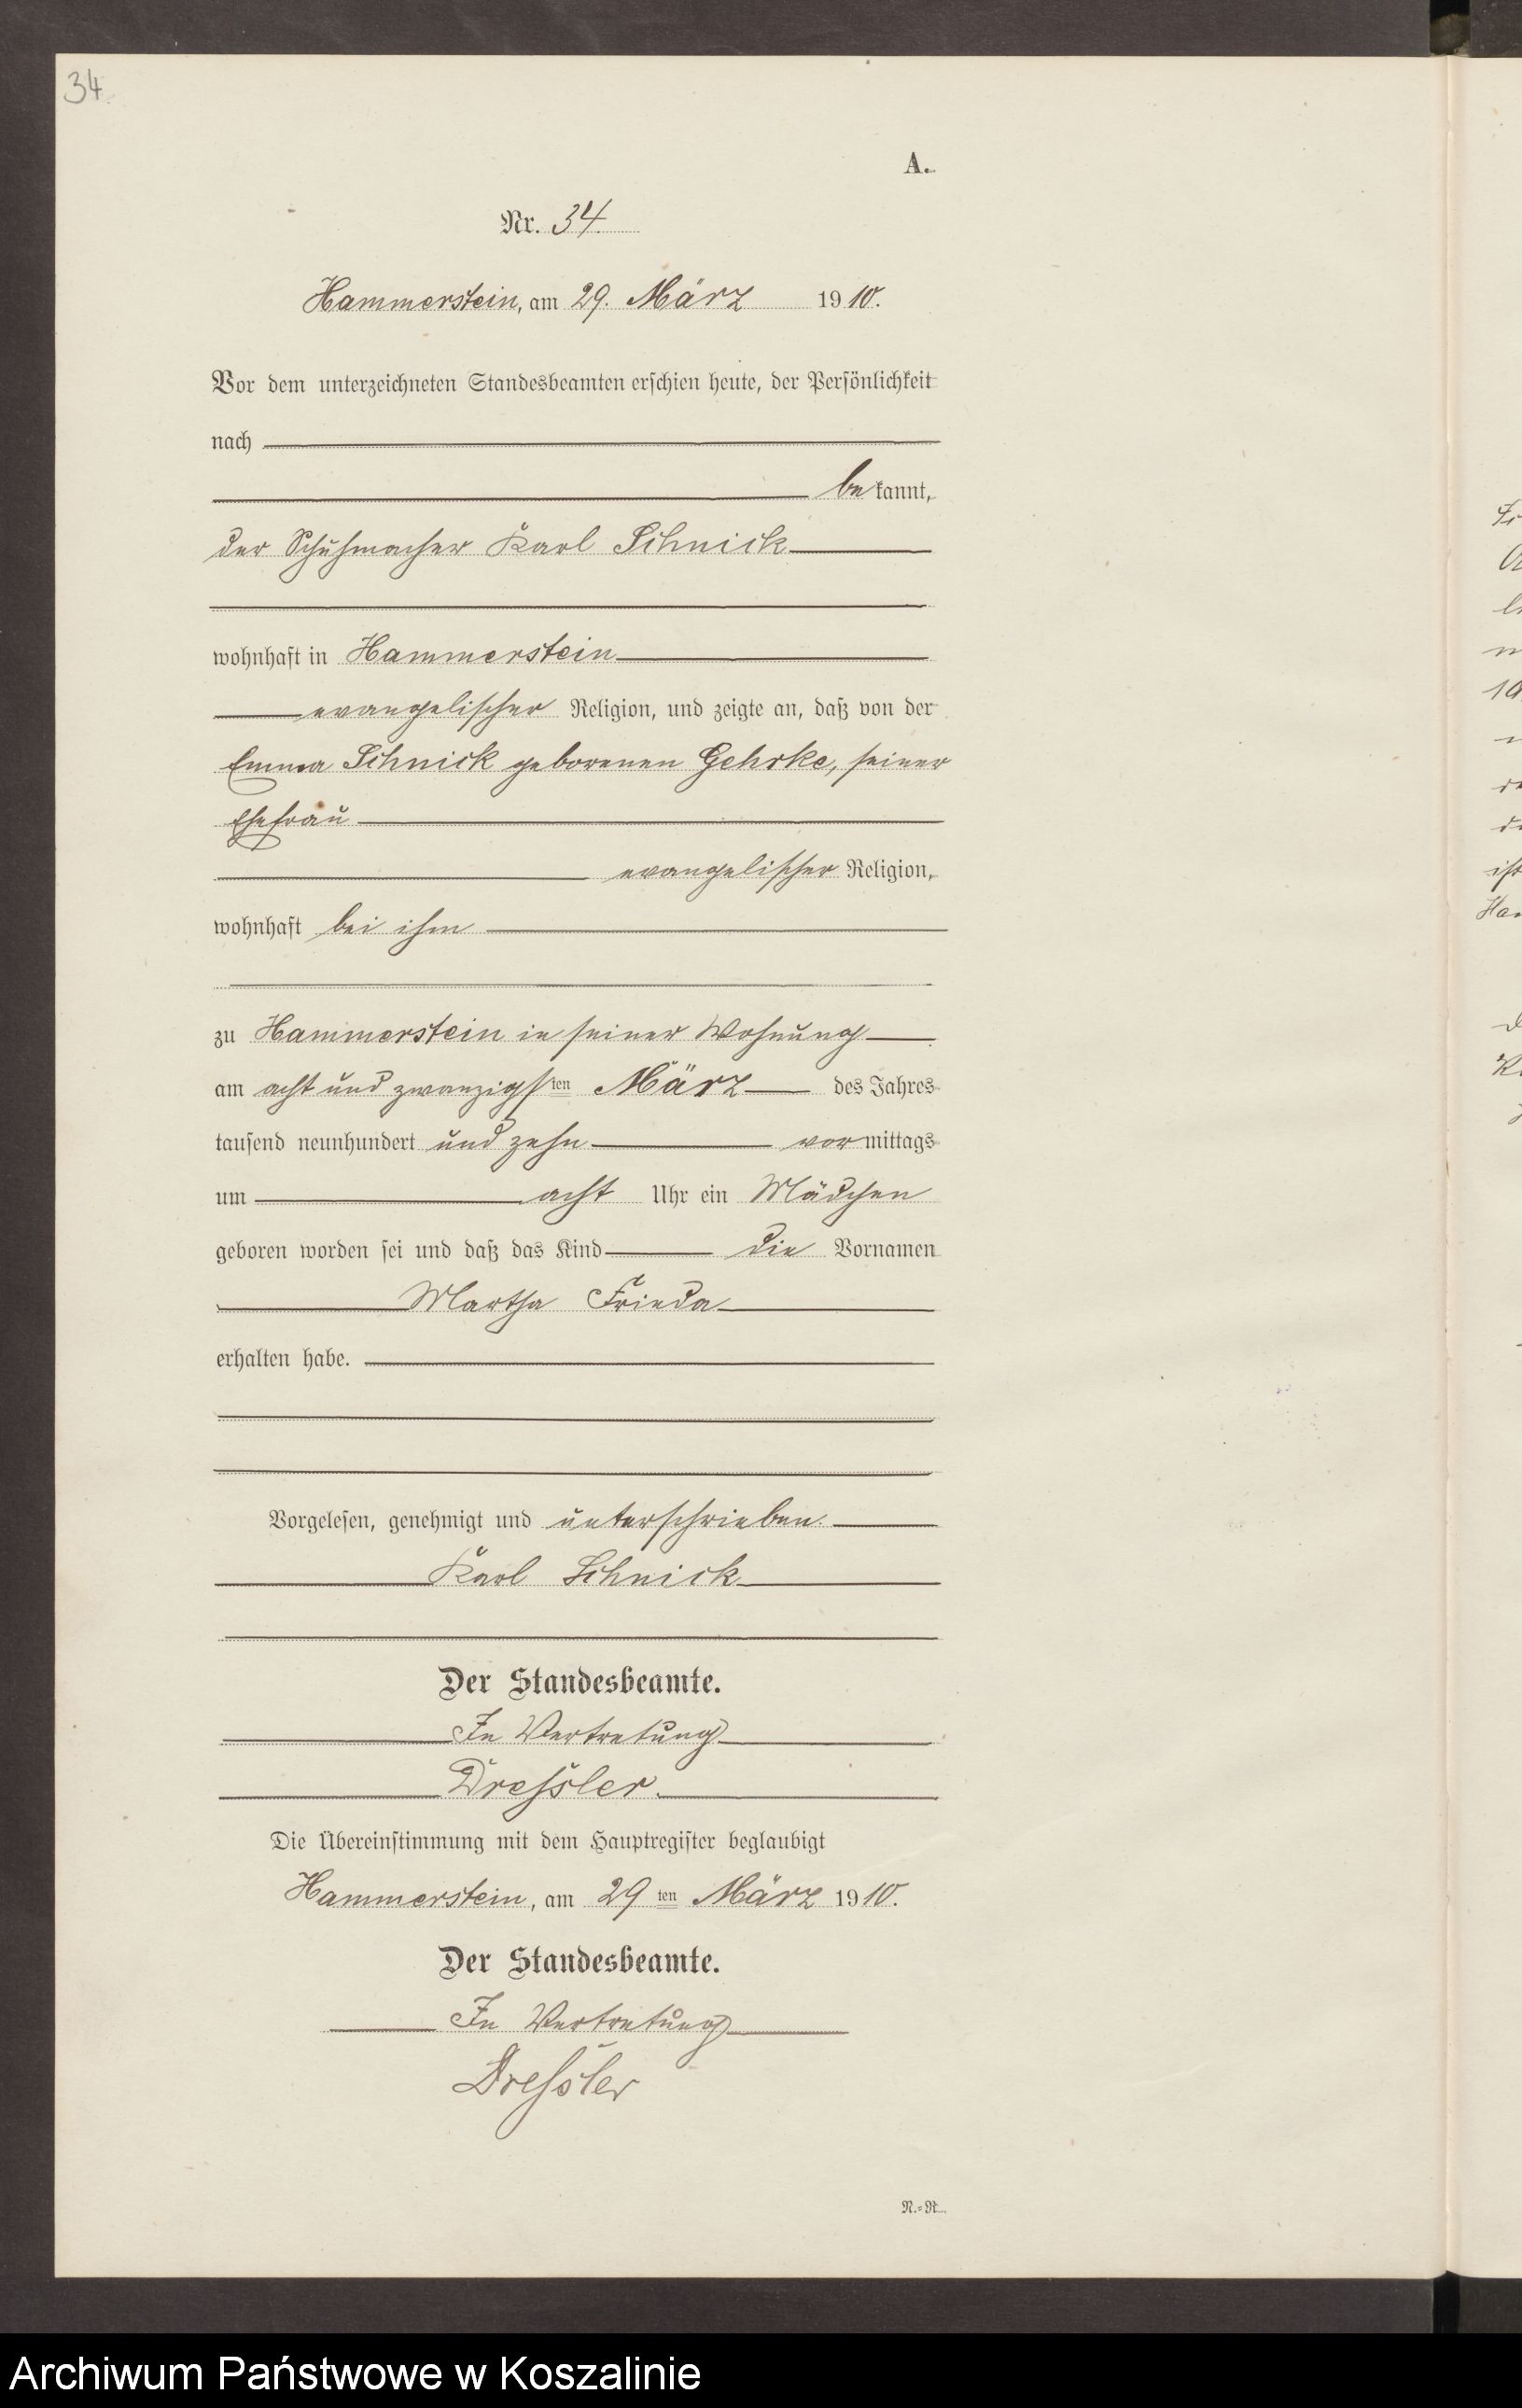 34.
A.
Nr. 34.
Hammerstein, am 29. März 1910.
Vor dem unterzeichneten Standesbeamten erschien heute, der Persönlichkeit
nach
bekannt,
der Schuhmacher Karl Schnick
wohnhaft in Hammerstein
evangelischer Religion, und zeigte an, daß von der
Emma Schnick geborenen Gehrke, seiner
Ehefrau
evangelischer Religion,
wohnhaft bei ihm
zu Hammerstein in seiner Wohnung
am acht und zwanzigsten März des Jahres
tausend neunhundert und zehn vormittags
um acht Uhr ein Mädchen
geboren worden sei und daß das Kind die Vornamen
Martha Frieda
erhalten habe.
Vorgelesen, genehmigt und unterschrieben.
Karl Schnick
Der Standesbeamte.
In Vertretung
Dressler.
Die Übereinstimmung mit dem Hauptregister beglaubigt
Hammerstein, am 29ten März 1910.
Der Standesbeamte.
In Vertretung
Dressler
N.=R.
ist
Archiwum Państwowe w Koszalinie